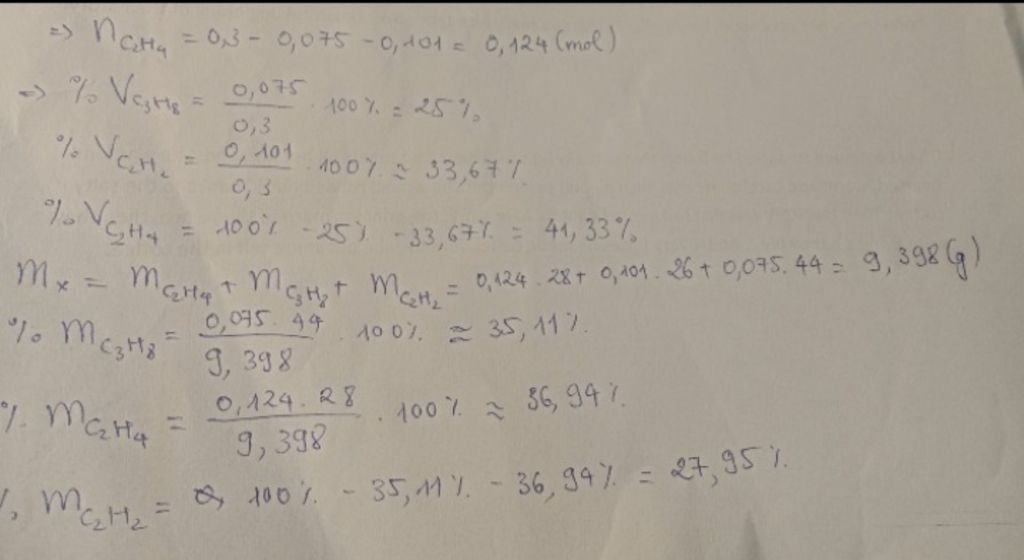 => n C₂H₄ = 0,3 - 0,075 - 0,101 = 0,124 (mol)
=> % V C₃H₈ = 0,075 / 0,3 . 100% = 25%
% V C₂H₂ = 0,101 / 0,3 . 100% ≈ 33,67%
% V C₂H₄ = 100% - 25% - 33,67% = 41,33%
m x = m C₂H₄ + m C₃H₈ + m C₂H₂ = 0,124 . 28 + 0,101 . 26 + 0,075 . 44 = 9,398 (g)
% m C₃H₈ = 0,075 . 44 / 9,398 . 100% ≈ 35,11%
% m C₂H₄ = 0,124 . 28 / 9,398 . 100% ≈ 36,94%
% m C₂H₂ = 100% - 35,11% - 36,94% = 27,95%